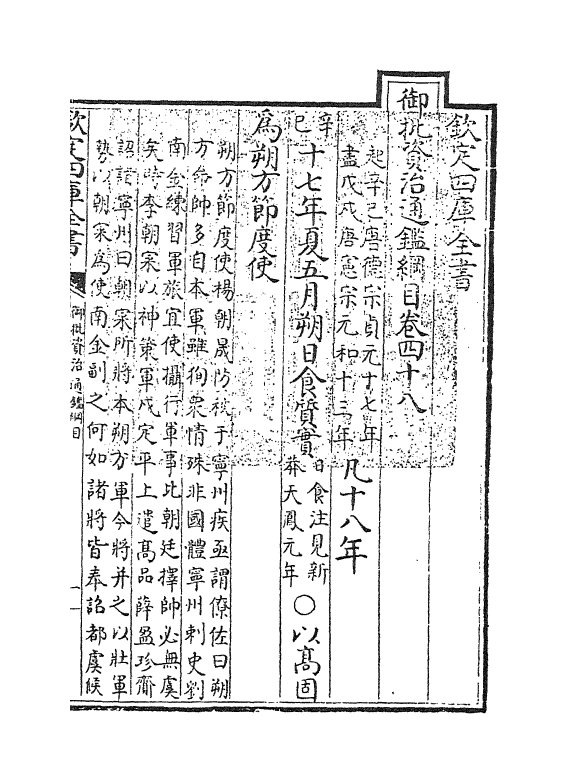 欽定四庫全書
御批資治通鑑綱目卷四十八
起辛巳唐德宗貞元十七年
盡戊戌唐憲宗元和十三年
凡十八年
辛巳
十七年夏五月朔日食質實
日食注見新
莽天鳳元年
○以髙固
為朔方節度使
朔方節度使楊朝晟防秋于寧州疾亟謂僚佐曰朔
方命帥多自本軍雖徇衆情殊非國體寧州刺史劉
南金練習軍旅宜使攝行軍事比朝廷擇帥必無虞
矣時李朝寀以神策軍戍定平上遣髙品薛盈珍齎
詔詣寧州曰朝寀所將本朔方軍今將并之以壯軍
勢以朝寀為使南金副之何如諸將皆奉詔都虞候
欽定四庫全書
御批資治通鑑綱目
一